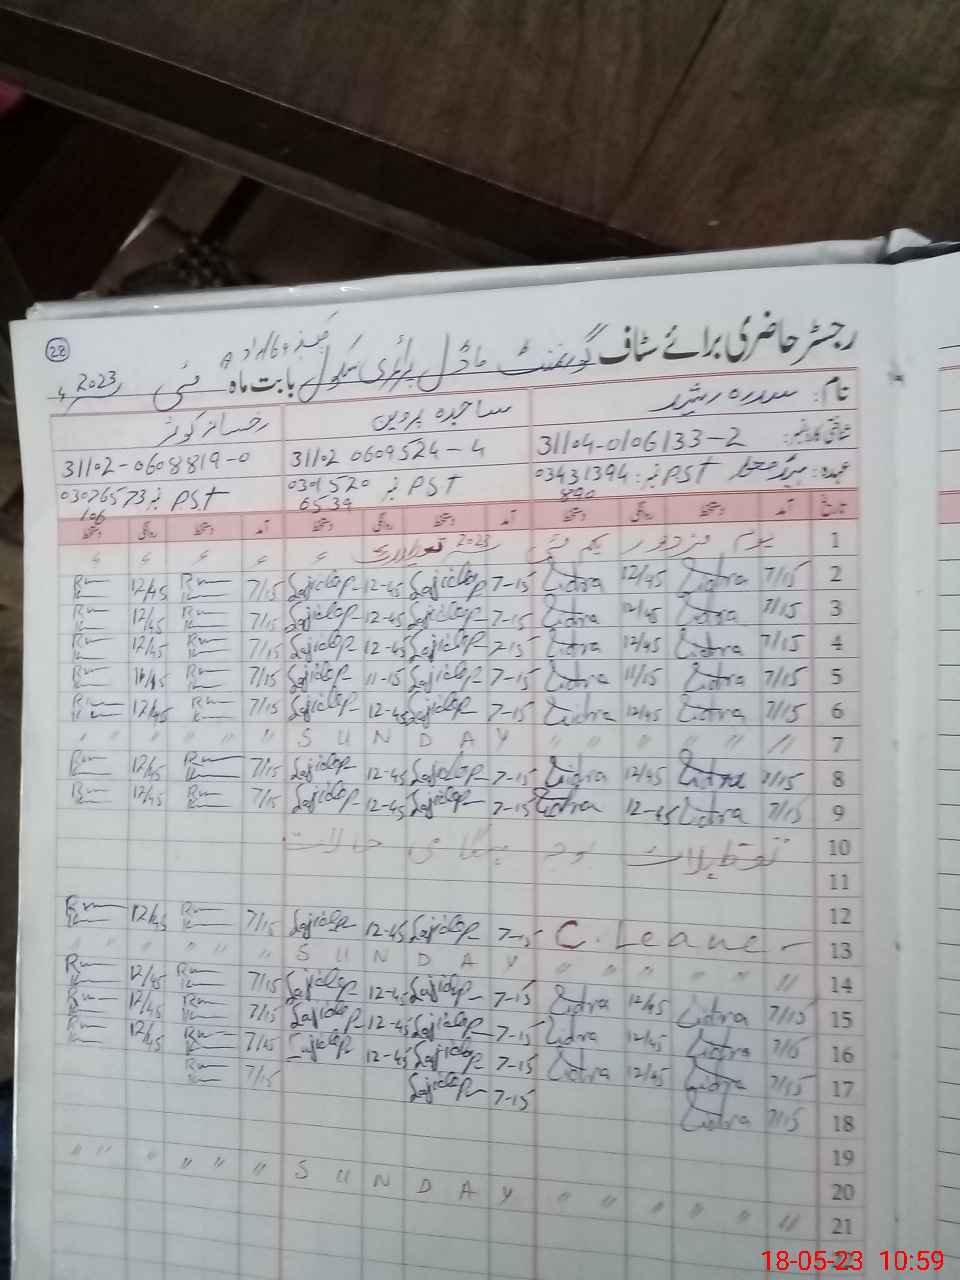 28
رجسٹر حاضری برائے سٹاف گورنمنٹ ماڈل پرائمری سکول بابت ماہ مئی 2023ء
نام: سدرہ رشید ساجدہ پروین رخسانہ کوثر
شناختی کارڈ نمبر: 31104-0106133-2 31102 0609524-4 31102-0608819-0
عہدہ: PST نمبر: 03431394 890 PST نمبر 0301520 6539 PST نمبر 03076573 106
تاریخ آمد دستخط روانگی دستخط آمد دستخط روانگی دستخط آمد دستخط روانگی دستخط
1 یوم مزدور یکم مئی 2023
2 7/15 Sidra 12/45 Sidra 7-15 Sajidap 12-45 Sajidap 7/15 12/45
3 7/15 Sidra 12/45 Sidra 7-15 Sajidap 12-45 Sajidap 7/15 12/45
4 7/15 Sidra 12/45 Sidra 7-15 Sajidap 12-45 Sajidap 7/15 12/45
5 7/15 Sidra 11/15 Sidra 7-15 Sajidap 11-15 Sajidap 7/15
6 7/15 Sidra 12/45 Sidra 7-15 Sajidap 12-45 Sajidap 7/15 12/45
7 〃 〃 〃 〃 S U N D A Y 〃 〃 〃 〃
8 7/15 Sidra 12/45 Sidra 7-15 Sajidap 12-45 Sajidap 7/15 12/45
9 7/15 Sidra 12-45 Sidra 7-15 Sajidap 12-45 Sajidap 7/15 12/45
10 تعطیلات بوجہ ہنگامی حالات
11
12
13 C. Leave - 7-15 Sajidap 12-45 Sajidap 7/15 12/45
14 〃 〃 〃 〃 S U N D A Y 〃 〃 〃 〃
15 7/15 Sidra 12/45 Sidra 7-15 Sajidap 12-45 Sajidap 7/15 12/45
16 7/15 Sidra 12/45 Sidra 7-15 Sajidap 12-45 Sajidap 7/15 12/45
17 7/15 Sidra 12/45 Sidra 7-15 Sajidap 12-45 Sajidap 7/15 12/45
18 7/15 Sidra 7-15 Sajidap 7/15
19
20
21 〃 〃 〃 〃 S U N D A Y 〃 〃 〃 〃
22
18-05-23 10:59